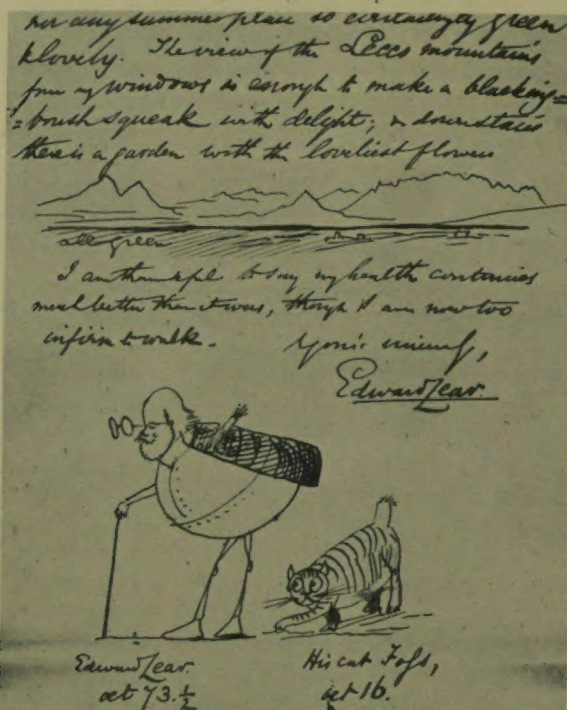 nor any summer place so everlastingly green
& lovely. The view of the Lecco mountains
from my windows is enough to make a blacking=
=brush squeak with delight; & downstairs
there is a garden with the loveliest flowers
all green
I am thankful to say my health continues
much better than it was, though I am now too
infirm to walk.
Yours sincerely,
Edward Lear.
Edward Lear.
æt 73.½
His cat Foss,
æt 16.